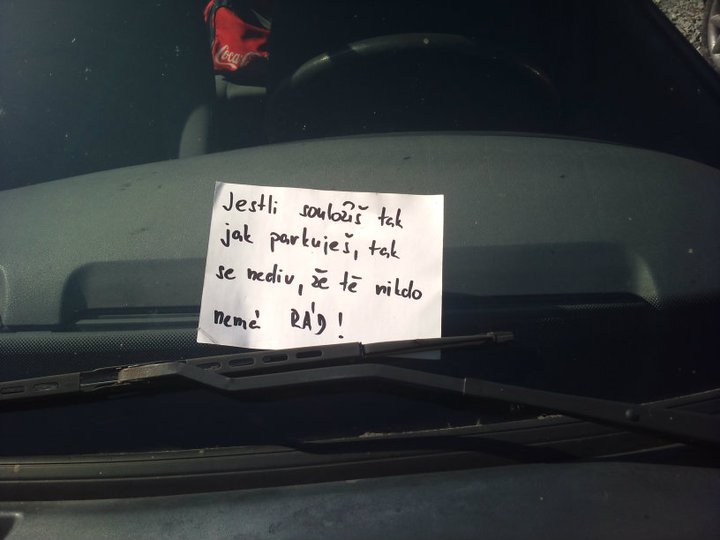 Coca-Cola
Jestli souložíš tak
jak parkuješ, tak
se nediv, že tě nikdo
nemá RÁD!